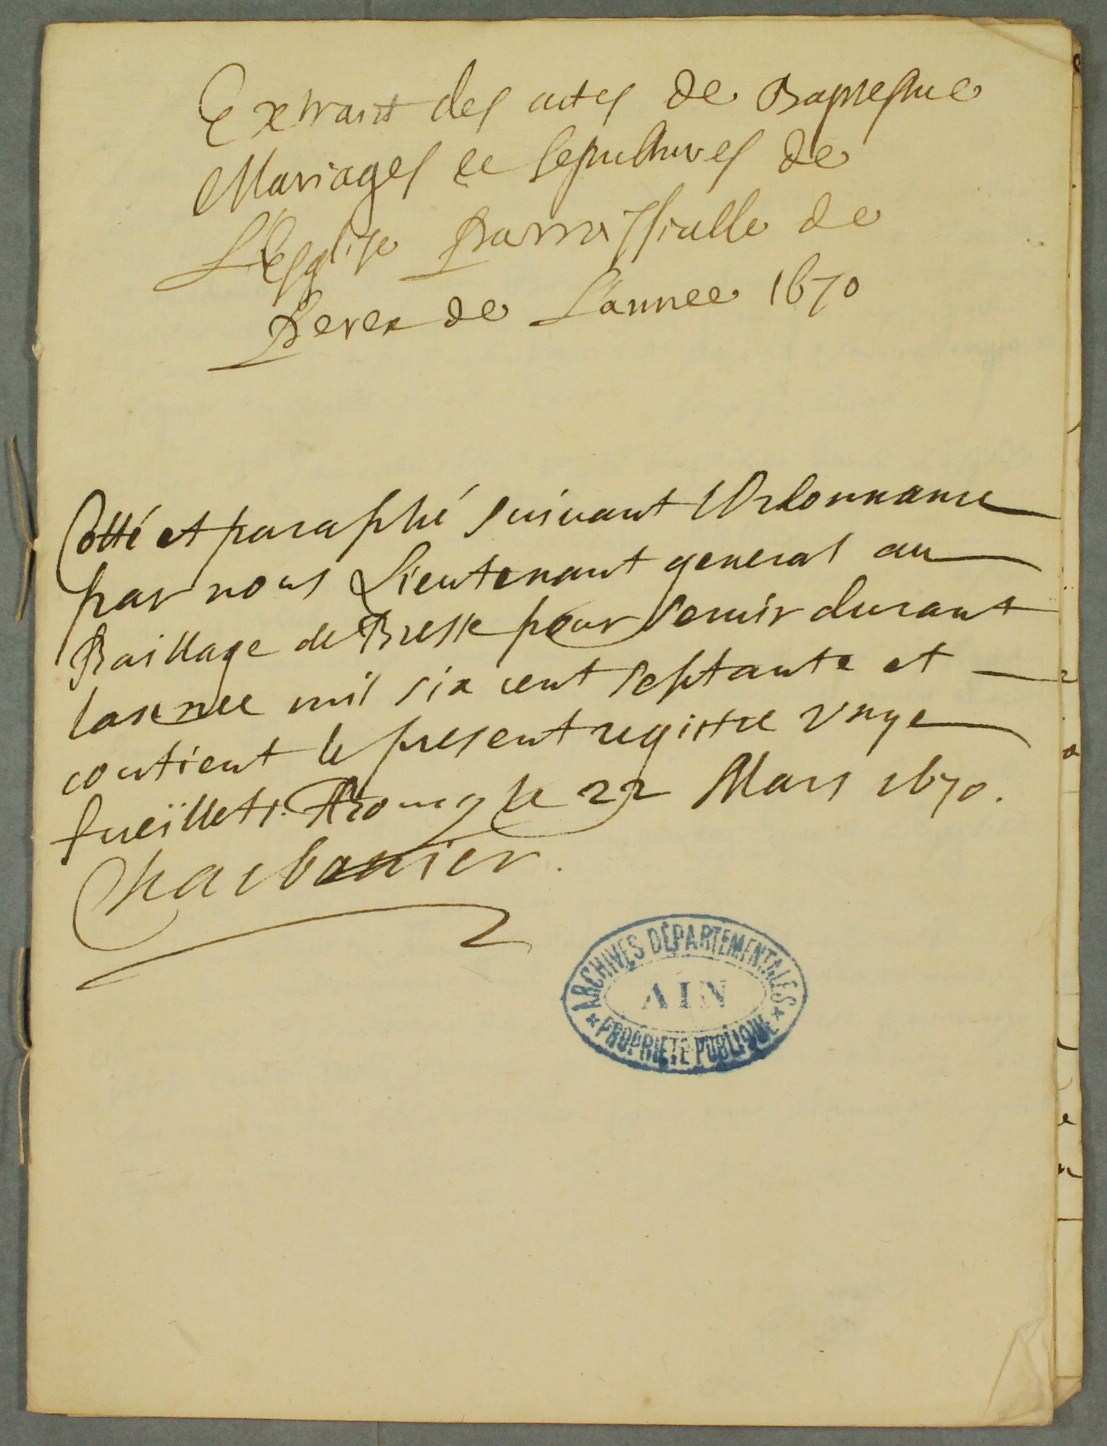 Extraict des actes de Baptesme
Mariages et sepultures de
L'esglise Parroissialle de
Perex de L'annee 1670
Cotté et paraphé suivant l'Ordonnance
par nous Lieutenant general au
Baillage de Bresse pour servir durant
lannee mil six cent septante et
contient le present registre unze
fueïllets. A Bourg le 22 Mars 1670.
Charbonnier.
ARCHIVES DÉPARTEMENTALES
AIN
PROPRIÉTÉ PUBLIQUE